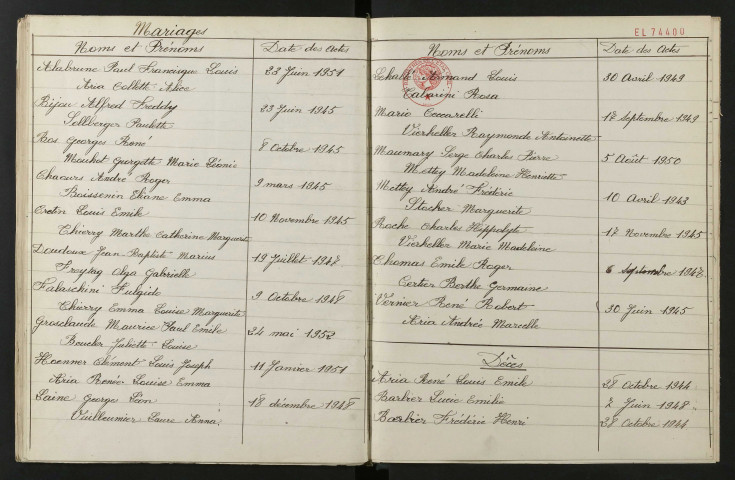 Mariages
Noms et Prénoms Date des Actes
Alabrune Paul Francisque Louis 23 Juin 1951
Aria Colette Alice
Bijou Alfred Freddy 23 Juin 1945
Sollberger Paulette
Bos Georges René 8 Octobre 1945
Mouhot Georgette Marie Léonie
Chaours André Roger 9 mars 1945
Boissenin Eliane Emma
Louis Emile 10 Novembre 1945
Thierry Marthe Catherine Marguerite
Doudoux Jean Baptiste Marius 19 Juillet 1947
Freytag Olga Gabrielle
Falaschini Fulgide 9 Octobre 1948
Thierry Emma Louise Marguerite
Grosclaude Maurice Paul Emile 24 mai 1952
Boucher Juliette Louise
Hoenner Clément Louis Joseph 11 Janvier 1951
Aria Renée Louise Emma
Laine Georges Léon 18 décembre 1948
Vuilleumier Laure Anna
EL 74400
Noms et Prénoms Date des Actes
Armand Louis 30 Avril 1949
Catarini Rosa
Mario Ceccarelli 17 Septembre 1949
Vierkeller Raymonde Antoinette
Maumary Serge Charles Pierre 5 Août 1950
Mettey Madeleine Henriette
Mettey André Frédéric 10 Avril 1943
Stocker Marguerite
Roche Charles Hippolyte 17 Novembre 1945
Vierkeller Marie Madeleine
Thomas Emile Roger 6 Septembre 1947
Certier Berthe Germaine
Vernier René Robert 30 Juin 1945
Aria Andrée Marcelle
Décès
Aria René Louis Emile 28 Octobre 1944
Barbier Lucie Emilie 7 Juin 1948
Barbier Frédéric Henri 28 Octobre 1944